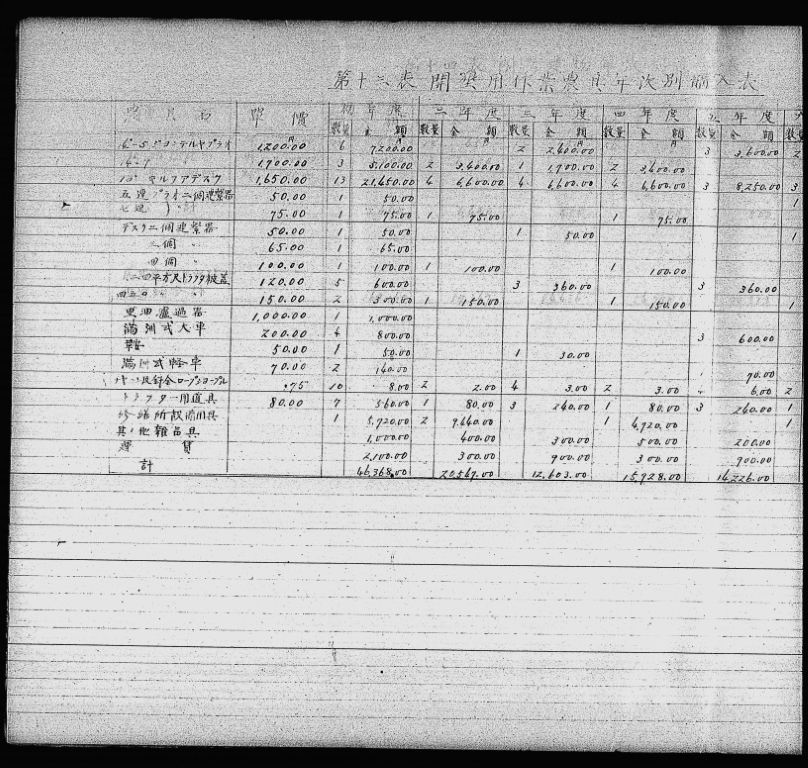 第十三表 開墾用作業農具年次別購入表
農具名 單價 初年度 二年度 三年度 四年度 五年度 六
數量 金額 數量 金額 數量 金額 數量 金額 數量 金額 數
1,200.00 6 7,200.00 2 2,400.00 3 3,600.00 2
1,700.00 3 5,100.00 2 3,400.00 1 1,700.00 2 3,400.00
1,650.00 13 21,450.00 4 6,600.00 4 6,600.00 4 6,600.00 3 8,250.00 3
五連プラオ二個連繋器 50.00 1 50.00 1
七連 〃 75.00 1 75.00 1 75.00 1 75.00
デスク二個連繋器 50.00 1 50.00 1 50.00 1
三個 〃 65.00 1 65.00
四個 〃 100.00 1 100.00 1 100.00 1 100.00
平方尺トラクタ被蓋 120.00 5 600.00 3 360.00 3 360.00
150.00 2 300.00 1 150.00 1 150.00 1
重油濾過器 1,000.00 1 1,000.00
滿洲式大車 200.00 4 800.00 3 600.00
鞍 50.00 1 50.00 1 50.00
滿洲式輕車 70.00 2 140.00 70.00
.75 10 8.00 2 2.00 4 3.00 2 3.00 6.00 2
トラクター用道具 80.00 7 560.00 1 80.00 3 240.00 1 80.00 3 240.00 1
修繕所設備用具 1 5,920.00 2 9,640.00 1 4,920.00 1
其ノ他雜品具 1,000.00 400.00 300.00 500.00 200.00
運賃 2,100.00 300.00 900.00 300.00 900.00
計 46,368.00 20,567.00 12,603.00 15,928.00 14,226.00